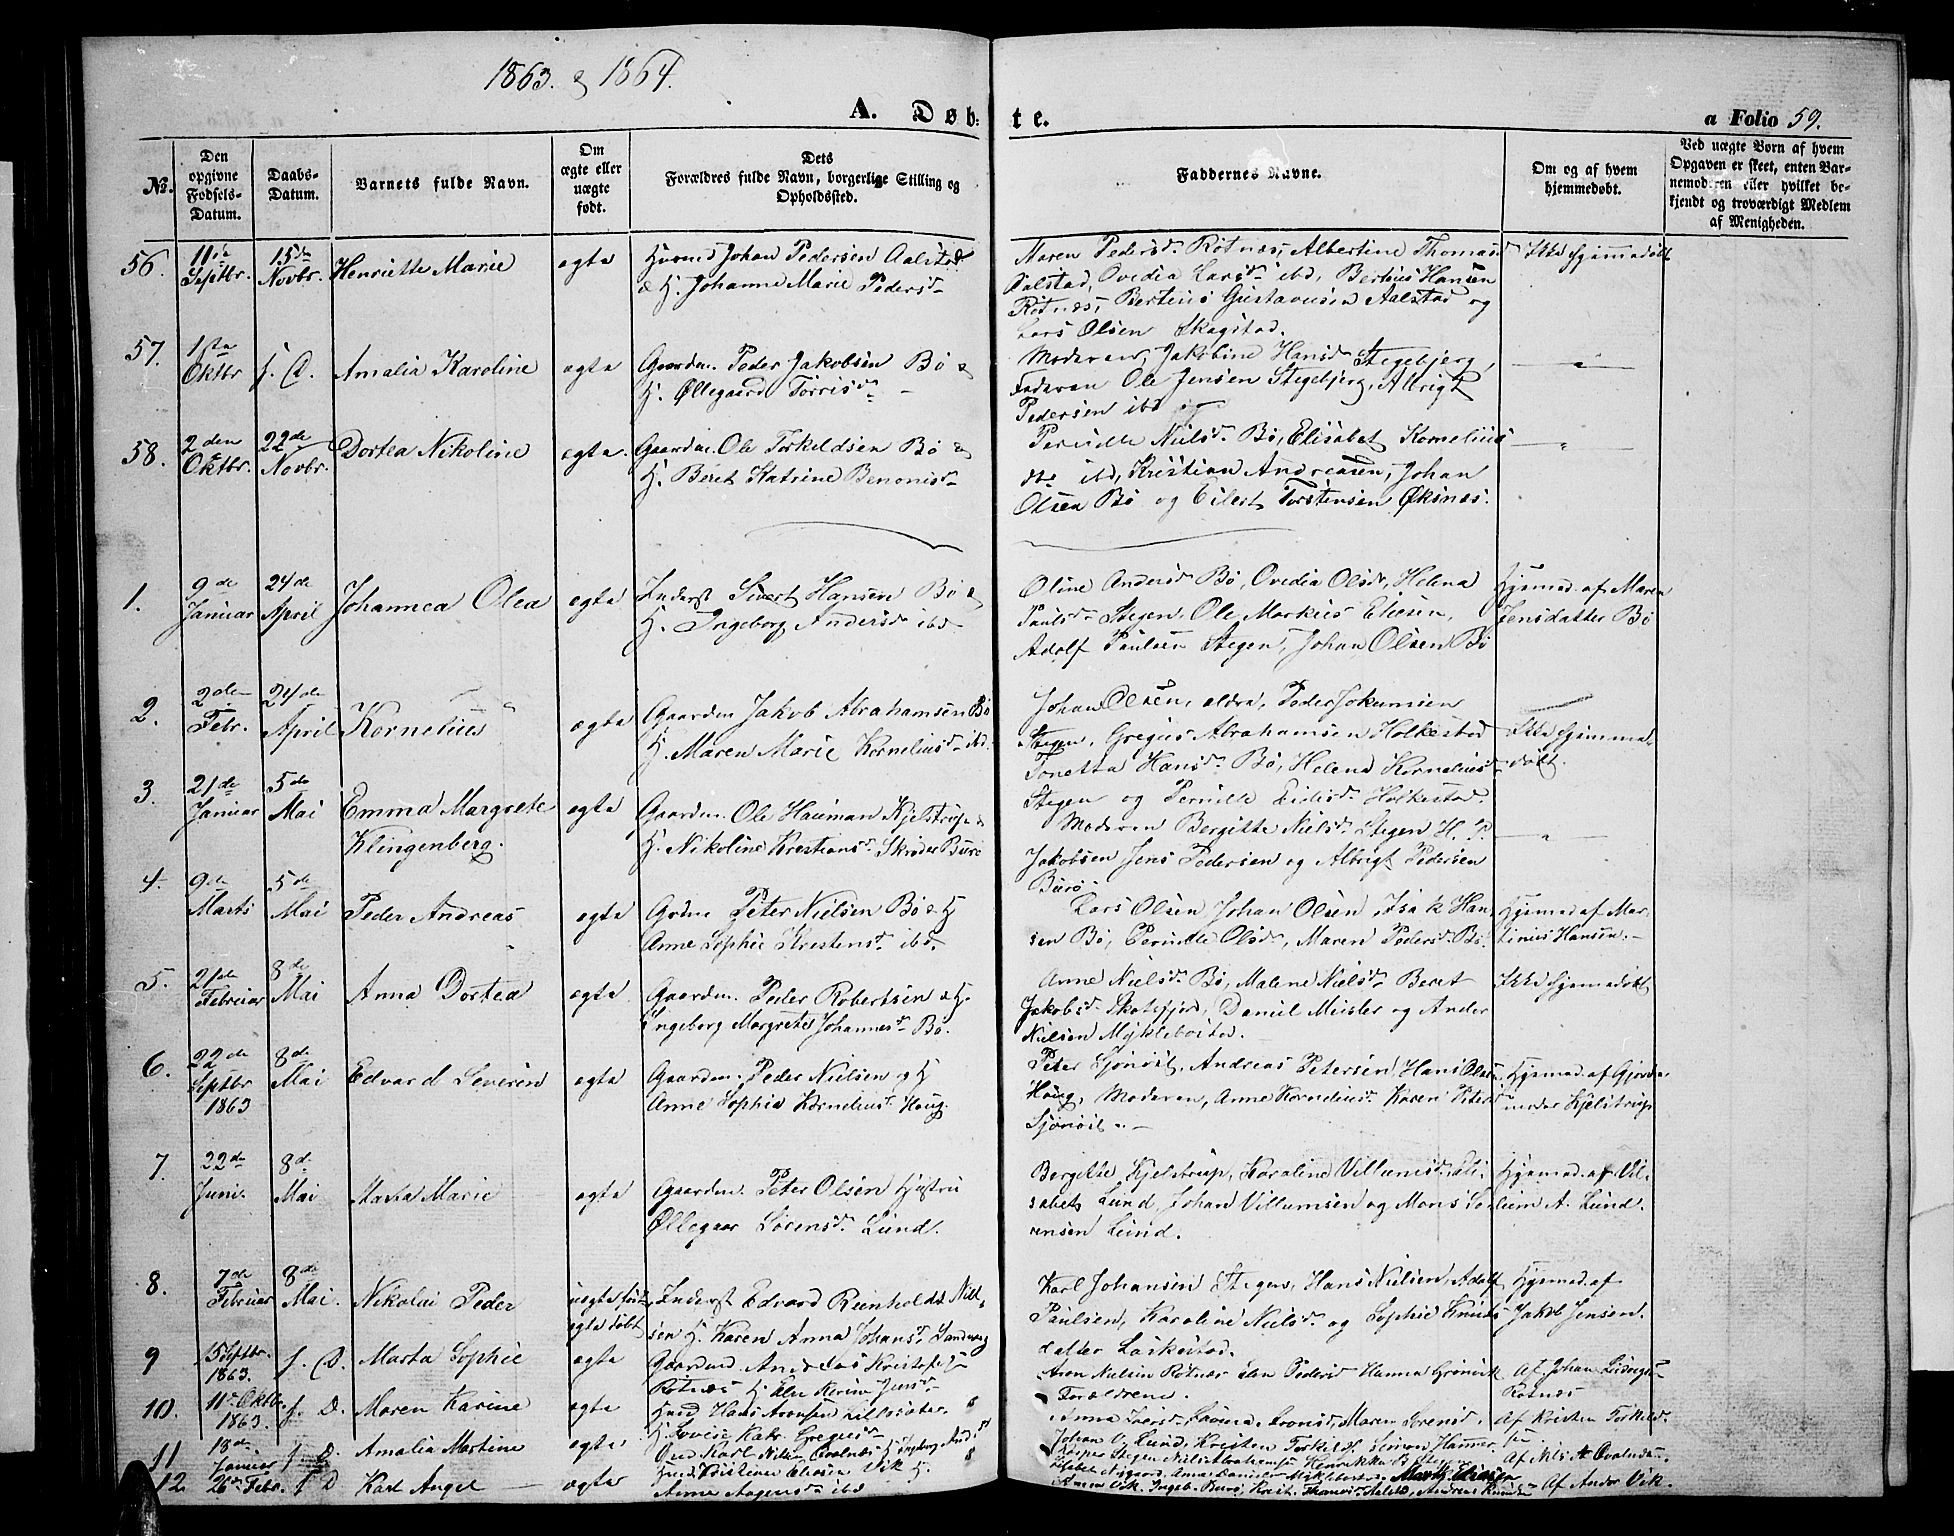 1863. & 1864.
A. Døb-
te.
a Folio 59.
№.
Den opgivne Fødsels-Datum.
Daabs-Datum.
Barnets fulde Navn.
Om ægte eller uægte født.
Dets Forældres fulde Navn, borgerlige Stilling og Opholdssted.
Faddernes Navne.
Om og af hvem hjemmedøbt.
Ved uægte Børn af hvem Opgaven er skeet, enten Barnemoderen eller hvilket bekjendt og troværdigt Medlem af Menigheden.
56. 11te Septbr. 15de Novbr. Henriette Marie ægte Huusmd Johan Pedersen Aalstad
& H. Johanne Marie Pedersd.
Maren Pedersd. Rotnæs, Albertine Thomasd
Aalstad, Ovedia Larsd. ibd, Berteus Hansen
Rotnæs, Berteus Gustavusen Aalstad og
Lars Olsen Skagstad.
Ikke hjemmedøbt
57. 1ste Oktbr f. D. Amalia Karoline ægte Gaardm. Peder Jakobsen Bø &
H. Øllegaard Torrisd.
Moderen, Jakobine Hansd. Stegebjerg,
Faderen Ole Jensen Stegebjerg, Albrigt
Pedersen ibd
— " —
58. 2den Oktbr. 22de Novbr. Dortea Nikoline ægte. Gaardm. Ole Torkeldsen Bø &
H. Beret Katrine Benonisd.
Pernille Nielsd. Bø, Elisabet Kornelius
dtr ibd, Kristian Andreasen, Johan
Olsen Bø og Eilert Torstensen Øksnes.
— " —
1. 9de Januar 24de April Johannea Olea ægte Inderst Sivert Hansen Bø &
H. Ingeborg Andersd. ibd
Oline Andersd Bø, Ovedia Olsd, Helena
Paulsd. Stegen, Ole Markus Eliesen,
Adolf Paulsen Stegen, Johan Olsen Bø
Hjemmed. af Maren
Jensdatter Bø
2. 2den Febr. 24de April Kornelius ægte Gaardm Jakob Abrahamsen Bø
H. Maren Marie Korneliusd. ibd.
Johan Olsen, ældre, Peder Jokumsen
Stegen, Gregus Abrahamsen Holkestad
Tonetta Hansd. Bø, Helena Korneliusd.
Stegen og Pernille Eidisd. Holkestad.
Ikke hjemme-
døbt.
3. 21de Januar 5de Mai Emma Margrete
Klingenberg. ægte Gaardm. Ole Hauman Kjelstrup &
H. Nikoline Kristiansd. Skrøder Burø
Moderen Bergitte Nielsd. Stegen H. P.
Jakobsen Jens Pedersen og Albrigt Pedersen
Burø
— " —
4. 9de Marts 5de Mai Peder Andreas ægte Grdm Peter Nielsen Bø & H
Anne Sophie Kristensd. ibd.
Lars Olsen Johan Olsen, Isak Han-
sen Bø, Pernille Olsd., Maren Pedersd. Bø.
Hjemmed af Mar-
tinius Hansen.
5. 21de Februar 8de Mai Anna Dortea ægte Gaardm. Peder Robertsen & H.
Ingeborg Margrete Johannesd. Bø.
Anne Nielsd. Bø, Malene Nielsd. Beret
Jakobsd. Skotsfjord, Daniel Meisler og Ander
Nielsen Myklebostad.
Ikke hjemmedøbt
6. 22de Septbr 1863 8de Mai Edvard Severin ægte Gaardm. Peder Nielsen og H
Anne Sophia Korneliusd. Haug.
Peter Sjønøst, Andreas Petersen, Hans Olsen
Haug, Moderen, Anne Korneliusd. Karen Peters
Sjønøst.
Hjemmed. af Gjorde-
moder Kjelstrup
7. 22de Juni. 8de Mai Marta Marie ægte Gaardm. Peter Olsen Hustru
Øllegaar Sørensd. Lund.
Bergitte Kjelstrup, Karoline Villumsd. Eli-
sabet Lund, Johan Villumsen og Mons Sø-
rensen Lund.
Hjemmed. af Vil-
lum A. Lund.
8. 7de Februar 8de Mai. Nikolai Peder uegte født, ægte døbt Inderst Edvard Reinholdt Niel-
sen H. Karen Anna Johansd. Sandvæg
Karl Johansen Stegen, Hans Nielsen, Adolf
Paulsen, Karoline Nielsd. og Sophie Knuds
datter Laskestad.
Hjemmed. af
Jakob Jensen.
9 5 Septbr. 1863. f. D. Marta Sophie ægte Gaardmd. Andreas Kristofers.
Rotnæs H. Elen Karine Jensd.
Aron Nielsen Rotnæs Elen Pedersd Hanna Grønvik
Forældrene.
Af Johan Ludvigs.
Rotnæs
10. 11te Oktbr. 1863. f. D. Maren Karine ægte Husmd Hans Aronsen Lillesæter &
H. Lovise Katr. Gregusd.
Anna Iversd. Aronsd, Maren Sørensd.
Johan V. Lund, Kristen Torkilds. Simon Hammer
Af Kristen Torkilds
11 18de Januar f. D. Amalia Martine ægte Karl Nilsen
Kaspar Stegen Henrikka B.
Af Nils A.
12. 26de Febr. f D Karl Angel — ægte Husmd Kristian Eliesen Vik &
Anne Aagensd. ibd
Maritz Eliesen
Af Andor Vik.